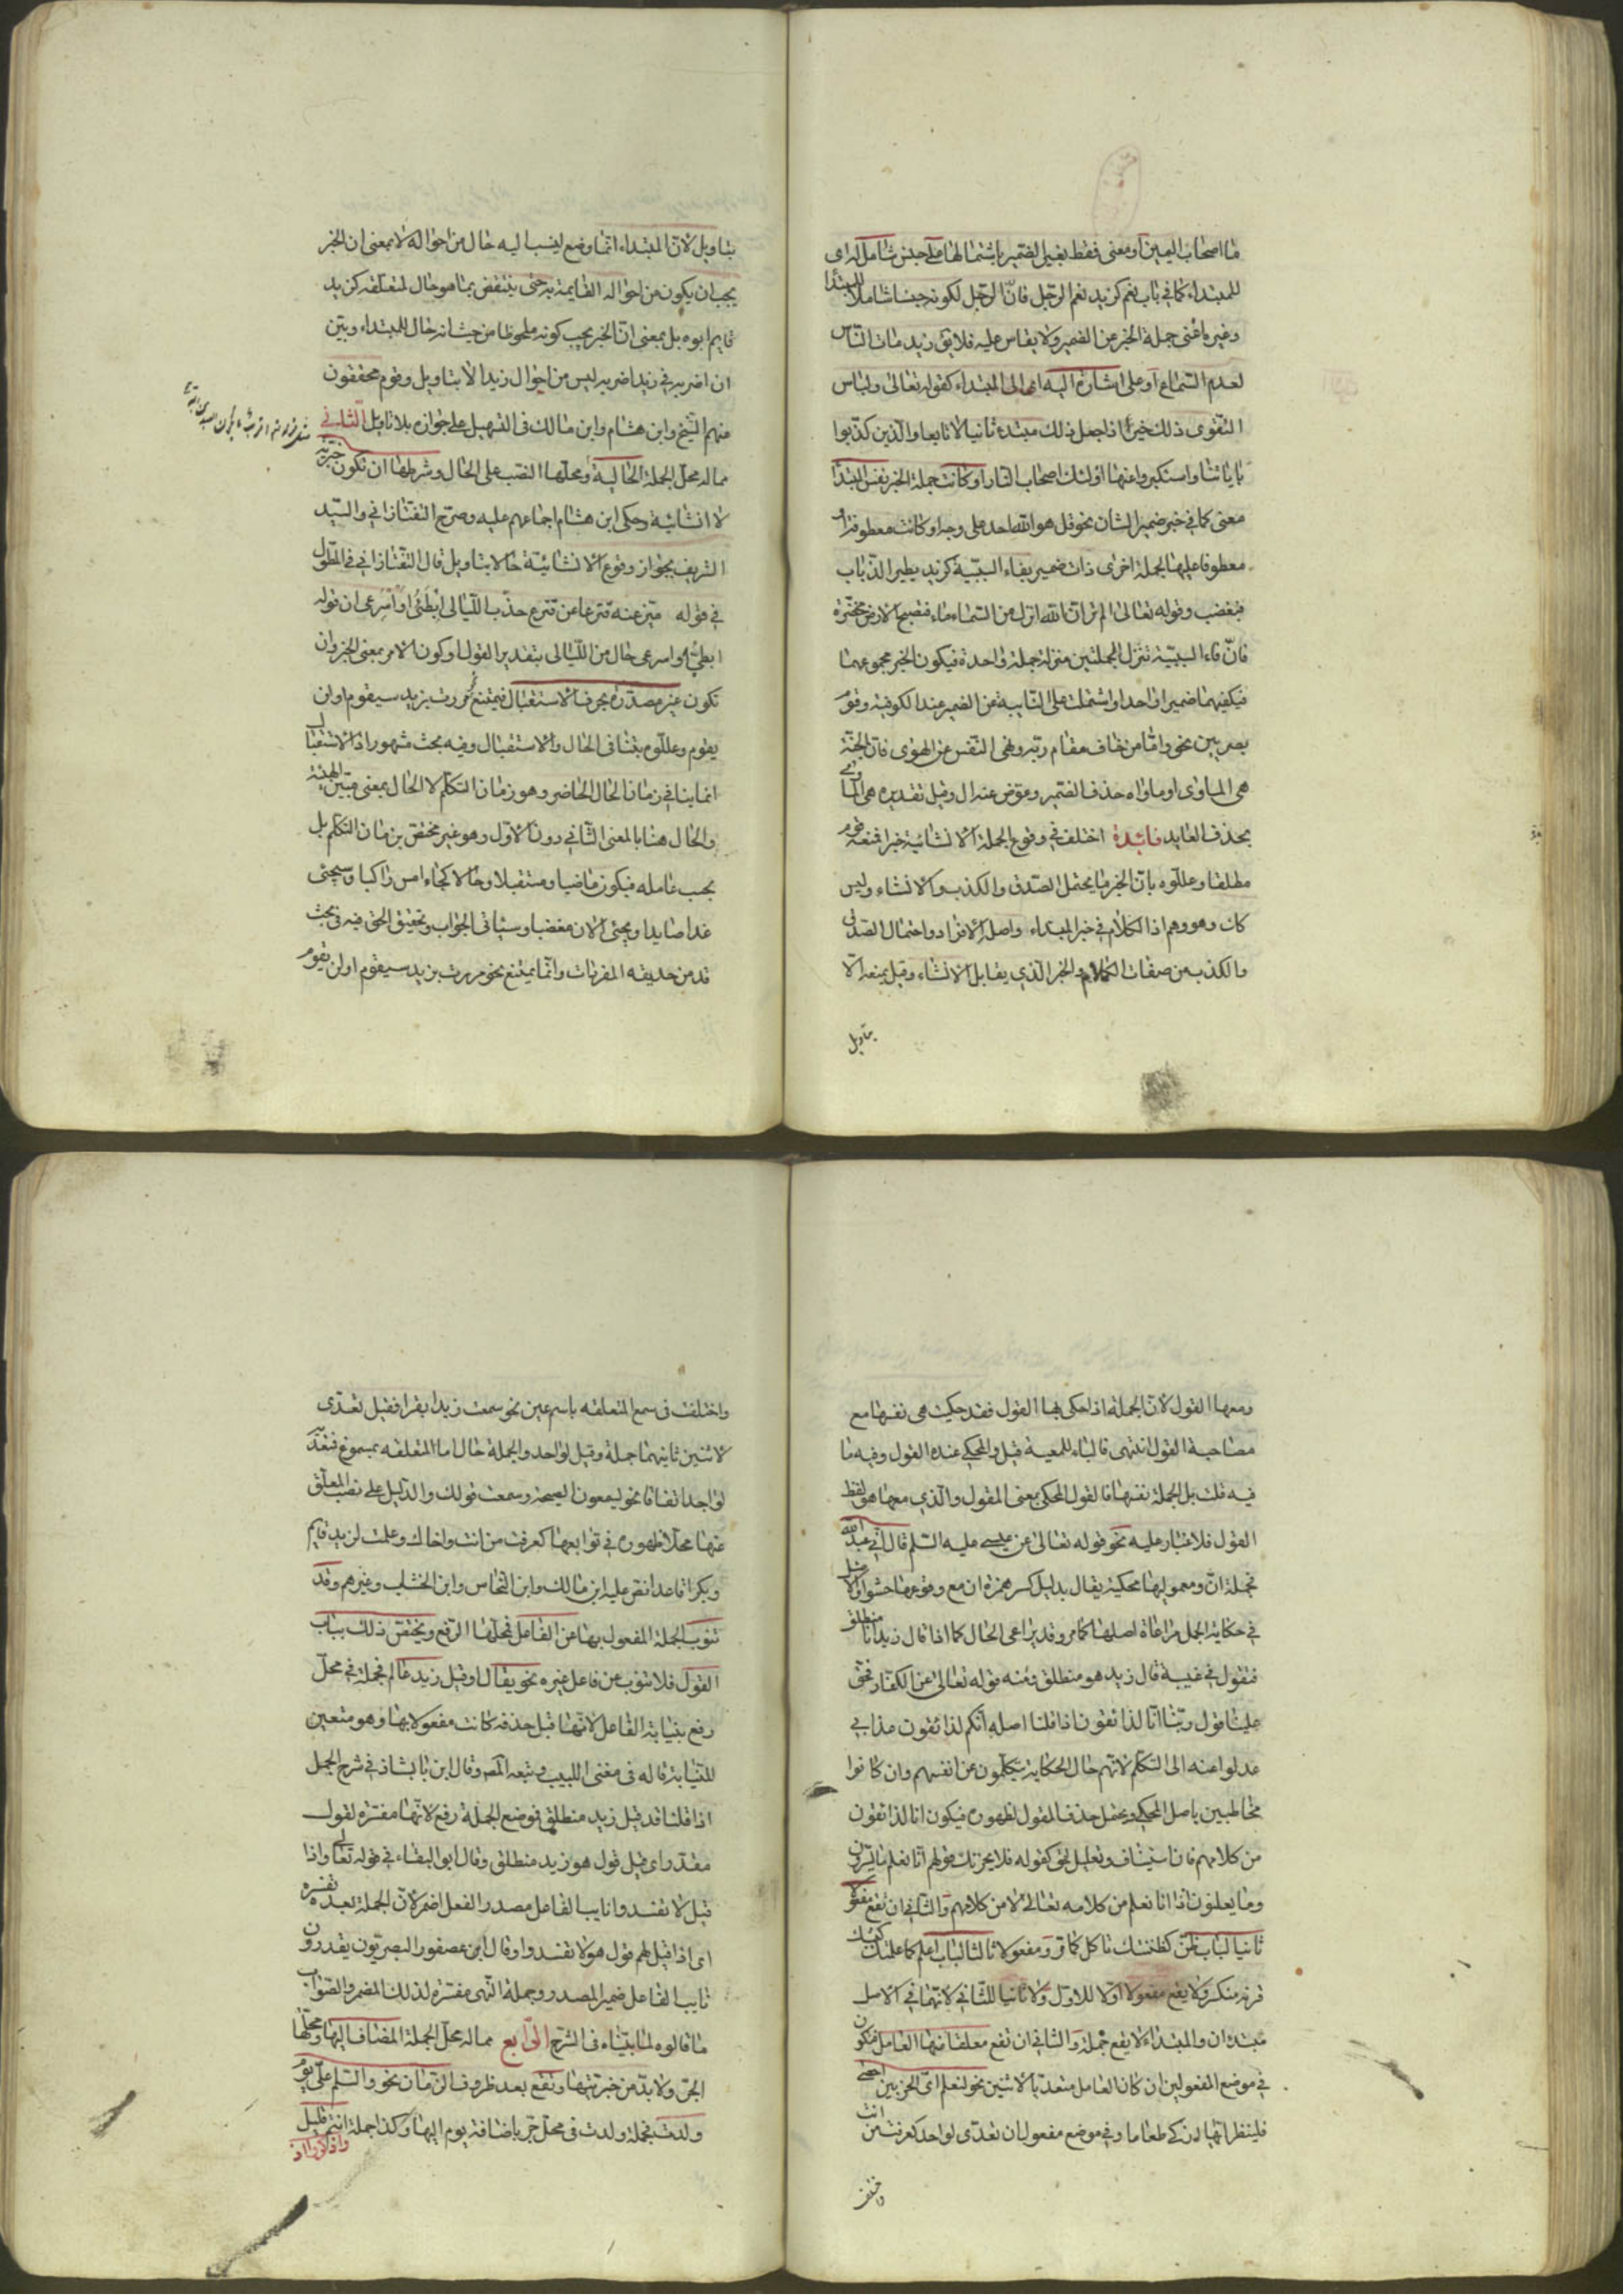 ما اصحاب اليمين او معنى فقط بغير الضمير باشتمالها على جنس شامل له اى
للمبتداء كما في باب نعم كزيد نعم الرجل فانّ الرجل لكونه جنسا شاملا للمبتدا
وغيره اغنى جملة الخبر عن الضمير ولا يقاس عليه فلا يق زيد مات الناس
لعدم السماع او على اشارة اليه اى الى المبتداء كقوله تعالى ولباس
التقوى ذلك خير اذا جعل ذلك مبتدء ثانيا لا تابعا والذين كذبوا
باياتنا واستكبروا عنها اولئك اصحاب النار او كانت جملة الخبر نفس المبتدا
معنى كما في خبر ضمير الشان نحو قل هو الله احد على وجه او كانت معطوفة او
معطوفا عليها بجملة اخرى ذات ضمير بفاء السببيّة كزيد يطير الذباب
فيغضب وقوله تعالى الم تر انّ الله انزل من السماء ماء فتصبح الارض مخضرّة
فانّ فاء السببيّة تنزل الجملتين منزلة جملة واحدة فيكون الخبر مجموعهما
فيكفيهما ضمير واحد او اشتملت على النايبة عن الضمير عند الكوفية وقوم
بصريين نحو وامّا من خاف مقام ربّه ونهى النفس عن الهوى فانّ الجنّة
هى الماوى او ماواه حذف الضمير وعوّض عنه ال وقيل تقديره هى الماوى له
بحذف العايد فائدة اختلف في وقوع الجملة الانشائية خبرا فمنعه قوم
مطلقا وعللوه بانّ الخبر ما يحتمل الصدق والكذب والانشاء وليس
كك وهو وهم اذ الكلام في خبر المبتداء واصله الافراد واحتمال الصدق
والكذب من صفات الكلام والخبر الذي يقابل الانشاء وقيل بمنعه الّا
بتاويل
بتاويل لانّ المبتداء انّما وضع لينسب اليه حال من احواله لا بمعنى ان الخبر
يجب ان يكون من احواله القايمة به حتى ينتقض بما هو حال لمتعلقه كزيد
قايم ابوه بل بمعنى انّ الخبر يجب كونه ملحوظا من حيث انه حال للمبتداء وبيّن
ان اضربه في زيد اضربه ليس من احوال زيد الّا بتاويل وقوم محققون
منهم الشيخ وابن هشام وابن مالك فى التسهيل على جوازه بلا تاويل الثاني
مما له محل الجملة الحالية ومحلّها النصب على الحال وشرطها ان تكون خبريّة
لا انشائية وحكى ابن هشام اجماعهم عليه وصرّح التفتازاني والسيّد
الشريف بجواز وقوع الانشائيّة حالا بتاويل قال التفتازاني في المطوّل
في قوله ميّز عنه قنزعا عن قنزع جذب الليالي ابطئي او اسرعى ان قوله
ابطئي او اسرعى حال من الليالى بتقدير القول او كون الامر بمعنى الخبر وان
تكون غير مصدّرة بحرف الاستقبال فيمتنع مررت بزيد سيقوم او لن
يقوم وعللوه بتنافى الحال والاستقبال وفيه بحث مشهور اذ الاستقبال
انما ينافي زمان الحال الحاضر وهو زمان التكلّم لا الحال بمعنى مبيّن الهيئة
والحال هنا بالمعنى الثّاني دون الاوّل وهو غير مختصّ بزمان التكلّم بل
بحسب عامله فيكون ماضيا ومستقبلا وحالا كجاء امس راكبا وسيجئ
غدا صايدا ويجئ الان مغضبا وسيأتى الجواب وتحقيق الحق فيه فى بحث
قد من حديقة المفردات وانّما يمتنع نحو مررت بزيد سيقوم او لن يقوم
ومعها القول لانّ الجملة اذا حكى بها القول فقد حكيت هى نفسها مع
مصاحبة القول انتهى فالباء للمعية قيل والمحكي عنده القول وفيه ما
فيه قلت بل الجملة نفسها فالقول المحكى بمعنى المقول والذي معها هو لفظ
القول فلا غبار عليه نحو قوله تعالى عن عيسى عليه السلم قال انّي عبد الله
فجملة انّ ومعموليها محكية بقال بدليل كسر همزة ان مع وقوعها حشوا والاصل
في حكاية الجمل مراعاة اصلها كما مرّ وقد يراعى الحال كما اذا قال زيد انا منطلق
فتقول في غيبة قال زيد هو منطلق ومنه قوله تعالى عن الكفار فحقّ
علينا قول ربّنا انّا لذائقون اذ قلنا اصله انّكم لذائقون عذابي
عدلوا عنه الى التكلّم لانّهم حال الحكاية يتكلّمون عن انفسهم وان كانوا
مخاطبين باصل المحكي ويحتمل حذف المقول لظهوره فيكون انا لذائقون
من كلامهم فانّه استيناف وتعليل لحق كقوله فلا يحزنك قولهم انّا نعلم ما يسرّون
وما يعلنون اذ انا نعلم من كلامه تعالى لا من كلامهم والثّاني ان تقع مفعولا
ثانيا لباب ظنّ كظننتك تاكل كما مرّ ومفعولا ثالثا لباب اعلم كما علمتك
فرزند منكر ولا يقع مفعولا اوّلا للاوّل ولا ثانيا للثّاني لانهما في الاصل
مبتدءان والمبتداء لا يقع جملة والثالث ان تقع معلقا عنها العامل فتكون
في موضع المفعولين ان كان العامل متعدّيا لاثنين نحو لنعلم ايّ الحزبين احصى
فلينظر ايّها ازكى طعاما وفي موضع مفعول ان تعدّى لواحد كعرفت من انت
واختلف
واختلف فى سمع المتعلقة باسم عين نحو سمعت زيدا يقرا فقيل تعدّى
لاثنين ثانيهما جملة وقيل لواحد والجملة حال اما المتعلقه بمسموع فتعدّت
لواحد اتفاقا نحو يسمعون الصيحة وسمعت قولك والدّليل على نصب المعلّق
عنها محلّا ظهوره في توابعها كعرفت من انت واخاك وعلمت لزيد قايم
وبكرا قاعدا نصّ عليه ابن مالك وابن النحاس وابن الخشاب وغيرهم وقد
تنوب الجملة المفعول بها عن الفاعل فمحلّها الرفع ويختصّ ذلك بباب
القول فلا تنوب عن فاعل غيره نحو يقال او قيل زيد عالم فجملة في محلّ
رفع بنيابة الفاعل لانّها قبل حذفه كانت مفعولا بها وهو متعين
للنيابة قاله فى مغنى اللبيب وتبعه المص وقال ابن بابشاذ في شرح الجمل
اذا قلنا قد قيل زيد منطلق فوضع الجملة رفع لانّها مفسّرة لقول
مقدّر اى قيل قول هو زيد منطلق وقال ابوالبقاء في قوله تعالى واذا
قيل لا تفسدوا نايب الفاعل مصدر الفعل اضمر لانّ الجملة بعده تفسره
اى اذا قيل لهم قول هو لا تفسدوا وقال ابن عصفور البصريّون يقدرون
نايب الفاعل ضمير المصدر وجملة النّهى مفسّرة لذلك المضمر والصّواب
ما قالوه لما بيّناه فى الشرح الرّابع مما له محلّ الجملة المضاف اليها ومحلّها
الجرّ ولا بدّ من خبريّتها وتقع بعد ظروف الزّمان نحو والسّلم علىّ يوم
ولدت فجملة ولدت فى محلّ جرّ باضافة يوم اليها وكذا جملة انتم قليل
واذكروا اذ